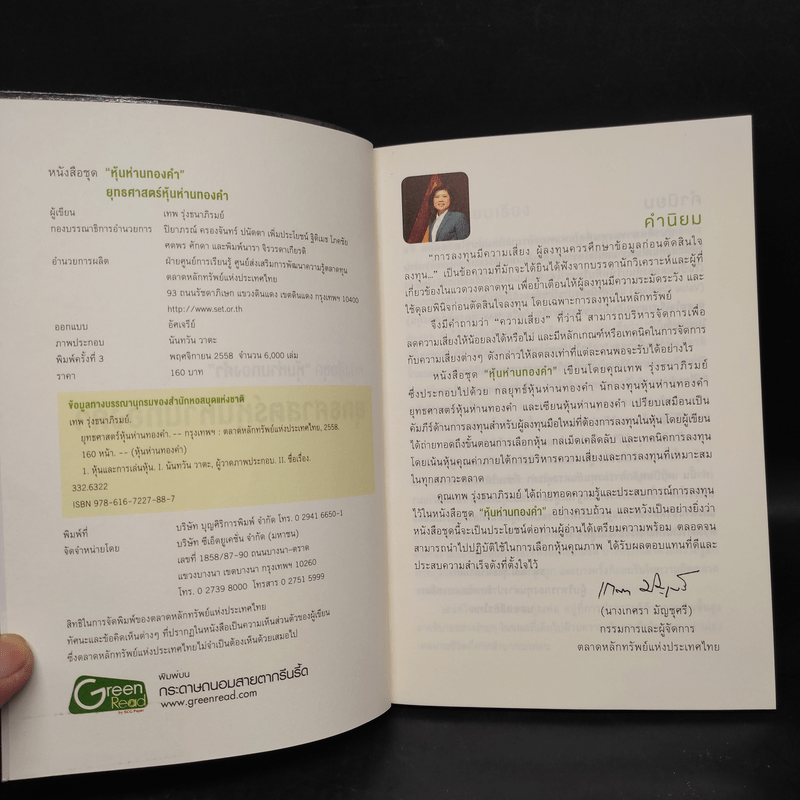 หนังสือชุด "หุ้นห่านทองคำ"
ยุทธศาสตร์หุ้นห่านทองคำ
ผู้เขียน เทพ รุ่งธนาภิรมย์
กองบรรณาธิการอำนวยการ ปิยาภรณ์ ครองจันทร์ ปนัดดา เพิ่มประโยชน์ ฐิติเมธ โภคชัย
คตพร ศักดา และพิมพ์นารา จิรวรดาเกียรติ
อำนวยการผลิต ฝ่ายศูนย์การเรียนรู้ ศูนย์ส่งเสริมการพัฒนาความรู้ตลาดทุน
ตลาดหลักทรัพย์แห่งประเทศไทย
93 ถนนรัชดาภิเษก แขวงดินแดง เขตดินแดง กรุงเทพฯ 10400
http://www.set.or.th
ออกแบบ อัคเจรีย์
ภาพประกอบ นันทวัน วาตะ
พิมพ์ครั้งที่ 3 พฤศจิกายน 2558 จำนวน 6,000 เล่ม
ราคา 160 บาท
ข้อมูลทางบรรณานุกรมของสำนักหอสมุดแห่งชาติ
เทพ รุ่งธนาภิรมย์.
ยุทธศาสตร์หุ้นห่านทองคำ. -- กรุงเทพฯ : ตลาดหลักทรัพย์แห่งประเทศไทย, 2558.
160 หน้า. -- (หุ้นห่านทองคำ)
1. หุ้นและการเล่นหุ้น. I. นันทวัน วาตะ, ผู้วาดภาพประกอบ. II. ชื่อเรื่อง.
332.6322
ISBN 978-616-7227-88-7
พิมพ์ที่ บริษัท บุญศิริการพิมพ์ จำกัด โทร. 0 2941 6650-1
จัดจำหน่ายโดย บริษัท ซีเอ็ดยูเคชั่น จำกัด (มหาชน)
เลขที่ 1858/87-90 ถนนบางนา-ตราด
แขวงบางนา เขตบางนา กรุงเทพฯ 10260
โทร. 0 2739 8000 โทรสาร 0 2751 5999
สิทธิในการจัดพิมพ์ของตลาดหลักทรัพย์แห่งประเทศไทย
ทัศนะและข้อคิดเห็นต่างๆ ที่ปรากฏในหนังสือเป็นความเห็นส่วนตัวของผู้เขียน
ซึ่งตลาดหลักทรัพย์แห่งประเทศไทยไม่จำเป็นต้องเห็นด้วยเสมอไป
Green
Read
by SCG Paper
พิมพ์บน
กระดาษถนอมสายตากรีนรี้ด
www.greenread.com
คำนิยม
"การลงทุนมีความเสี่ยง ผู้ลงทุนควรศึกษาข้อมูลก่อนตัดสินใจ
ลงทุน..." เป็นข้อความที่มักจะได้ยินได้ฟังจากบรรดานักวิเคราะห์และผู้ที่
เกี่ยวข้องในแวดวงตลาดทุน เพื่อย้ำเตือนให้ผู้ลงทุนมีความระมัดระวัง และ
ใช้ดุลยพินิจก่อนตัดสินใจลงทุน โดยเฉพาะการลงทุนในหลักทรัพย์
จึงมีคำถามว่า "ความเสี่ยง" ที่ว่านี้ สามารถบริหารจัดการเพื่อ
ลดความเสี่ยงให้น้อยลงได้หรือไม่ และมีหลักเกณฑ์หรือเทคนิคในการจัดการ
กับความเสี่ยงต่างๆ ดังกล่าวให้ลดลงเท่าที่แต่ละคนพอจะรับได้อย่างไร
หนังสือชุด "หุ้นห่านทองคำ" เขียนโดยคุณเทพ รุ่งธนาภิรมย์
ซึ่งประกอบไปด้วย กลยุทธ์หุ้นห่านทองคำ นักลงทุนหุ้นห่านทองคำ
ยุทธศาสตร์หุ้นห่านทองคำ และเซียนหุ้นห่านทองคำ เปรียบเสมือนเป็น
คัมภีร์ด้านการลงทุนสำหรับผู้ลงทุนมือใหม่ที่ต้องการลงทุนในหุ้น โดยผู้เขียน
ได้ถ่ายทอดถึงขั้นตอนการเลือกหุ้น กลเม็ดเคล็ดลับ และเทคนิคการลงทุน
โดยเน้นหุ้นคุณค่าภายใต้การบริหารความเสี่ยงและการลงทุนที่เหมาะสม
ในทุกสภาวะตลาด
คุณเทพ รุ่งธนาภิรมย์ ได้ถ่ายทอดความรู้และประสบการณ์การลงทุน
ไว้ในหนังสือชุด "หุ้นห่านทองคำ" อย่างครบถ้วน และหวังเป็นอย่างยิ่งว่า
หนังสือชุดนี้จะเป็นประโยชน์ต่อท่านผู้อ่านได้เตรียมความพร้อม ตลอดจน
สามารถนำไปปฏิบัติใช้ในการเลือกหุ้นคุณภาพ ได้รับผลตอบแทนที่ดีและ
ประสบความสำเร็จดังที่ตั้งใจไว้
(นางเกศรา มัญชุศรี)
กรรมการและผู้จัดการ
ตลาดหลักทรัพย์แห่งประเทศไทย